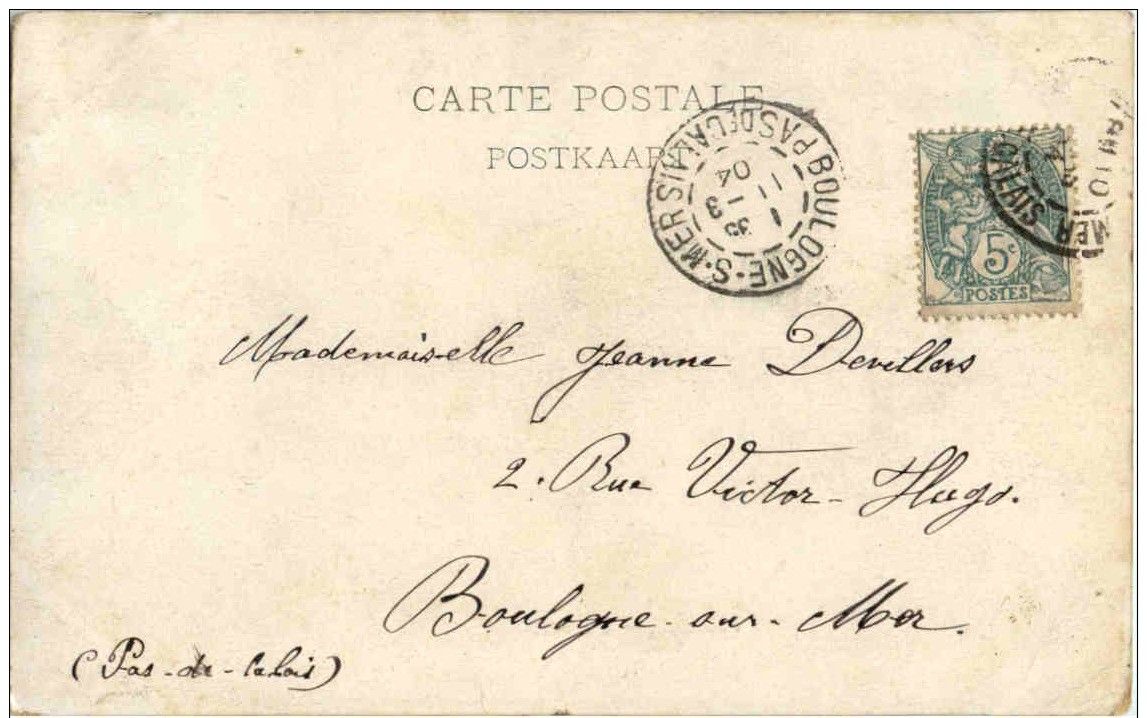 CARTE POSTALE
POSTKAART
BOULOGNE-S-MER
PAS DE CALAIS
04
5c
POSTES
CALAIS
MER
Mademoiselle Jeanne Devillers
2. Rue Victor-Hugo.
Boulogne-sur-Mer.
(Pas-de-Calais)